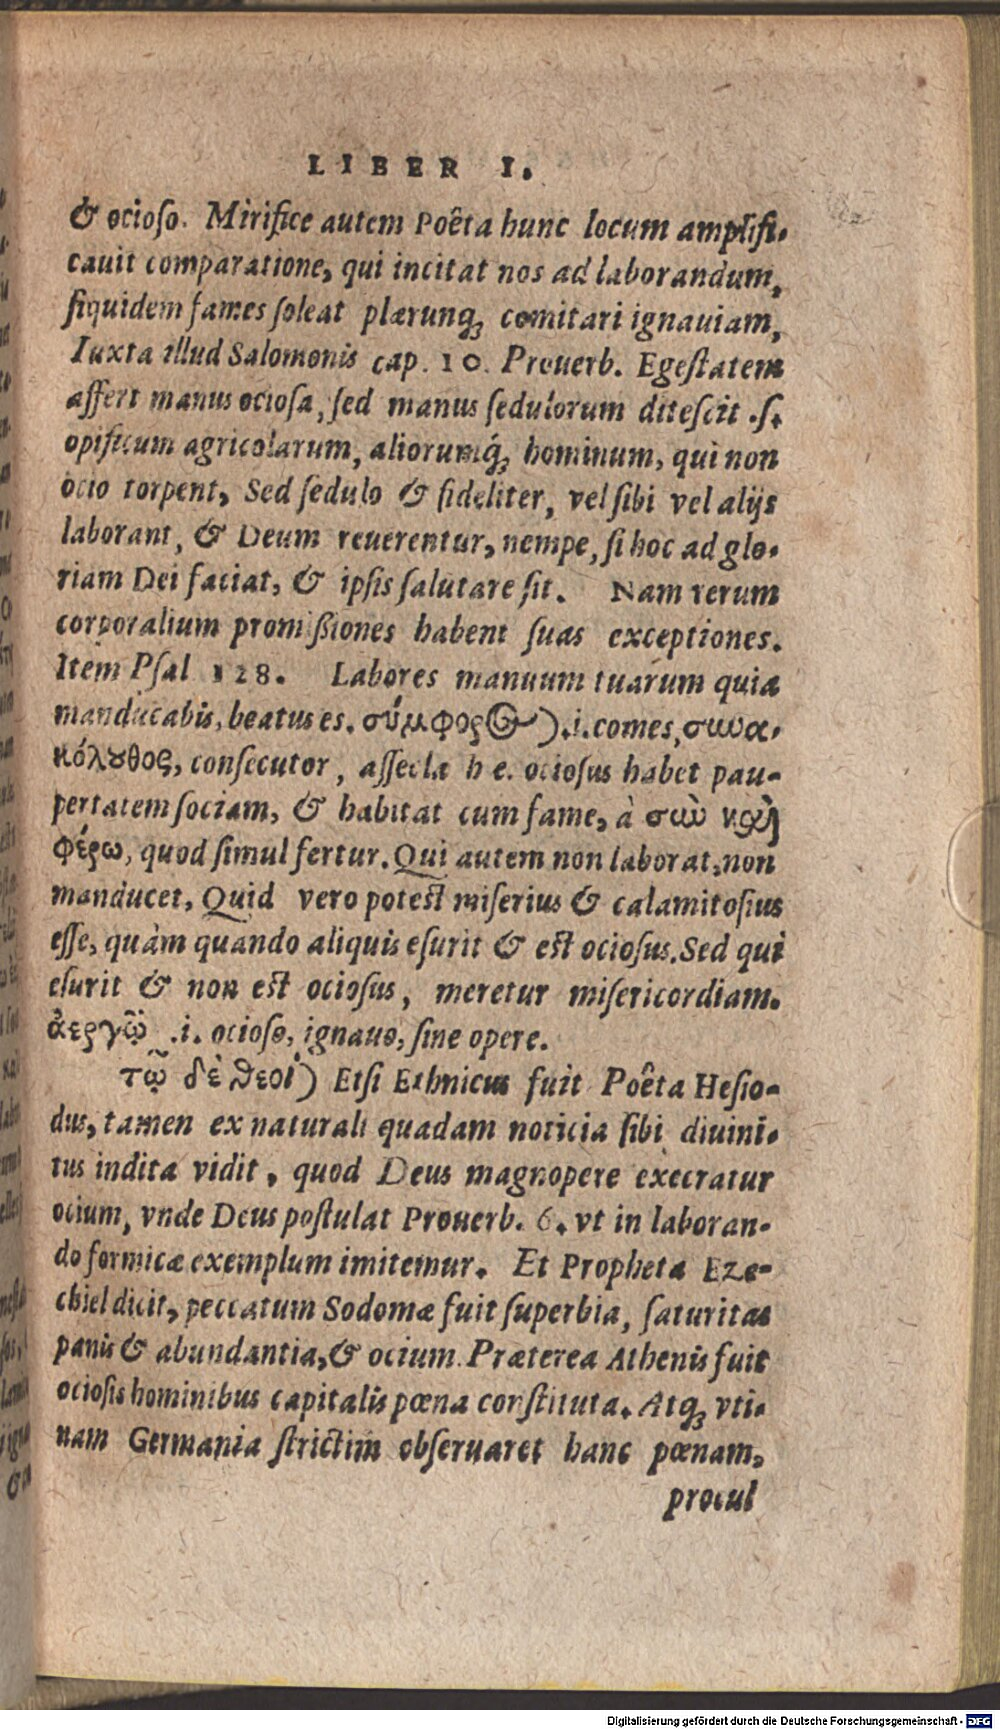 LIBER I.
& ocioſo. Mirifice autem Poêta hunc locum amplifi-
cauit comparatione, qui incitat nos ad laborandum,
ſiquidem fames ſoleat plærunq; comitari ignauiam,
Iuxta illud Salomonis cap. 10. Prouerb. Egeſtatem
affert manus ocioſa, ſed manus ſedulorum diteſcit .ſ.
opificum agricolarum, aliorumq́; hominum, qui non
ocio torpent, Sed ſedulo & fideliter, vel ſibi vel alijs
laborant, & Deum reuerentur, nempe, ſi hoc ad glo-
riam Dei faciat, & ipſis ſalutare ſit. Nam rerum
corporalium promißiones habent ſuas exceptiones.
Item Pſal 128. Labores manuum tuarum quia
manducabis, beatus es. σύμφορος) .i. comes, συνα-
κόλȣθος, conſecutor, aſſecla h e. ocioſus habet pau-
pertatem ſociam, & habitat cum fame, à σὺν καὶ
φέρω, quod ſimul fertur. Qui autem non laborat, non
manducet, Quid vero poteſt miſerius & calamitoſius
eſſe, quàm quando aliquis eſurit & eſt ocioſus. Sed qui
eſurit & non eſt ocioſus, meretur miſericordiam.
ἀεργῷ .i. ocioſo, ignauo, ſine opere.
τῷ δὲ θεοὶ) Etſi Ethnicus fuit Poêta Heſio-
dus, tamen ex naturali quadam noticia ſibi diuini-
tus indita vidit, quod Deus magnopere execratur
ocium, vnde Deus poſtulat Prouerb. 6. vt in laboran-
do formicæ exemplum imitemur. Et Propheta Eze-
chiel dicit, peccatum Sodomæ fuit ſuperbia, ſaturitas
panis & abundantia, & ocium. Præterea Athenis fuit
ocioſis hominibus capitalis pœna conſtituta. Atq; vti-
nam Germania ſtrictim obſeruaret hanc pœnam,
procul
Digitalisierung gefördert durch die Deutsche Forschungsgemeinschaft - DFG